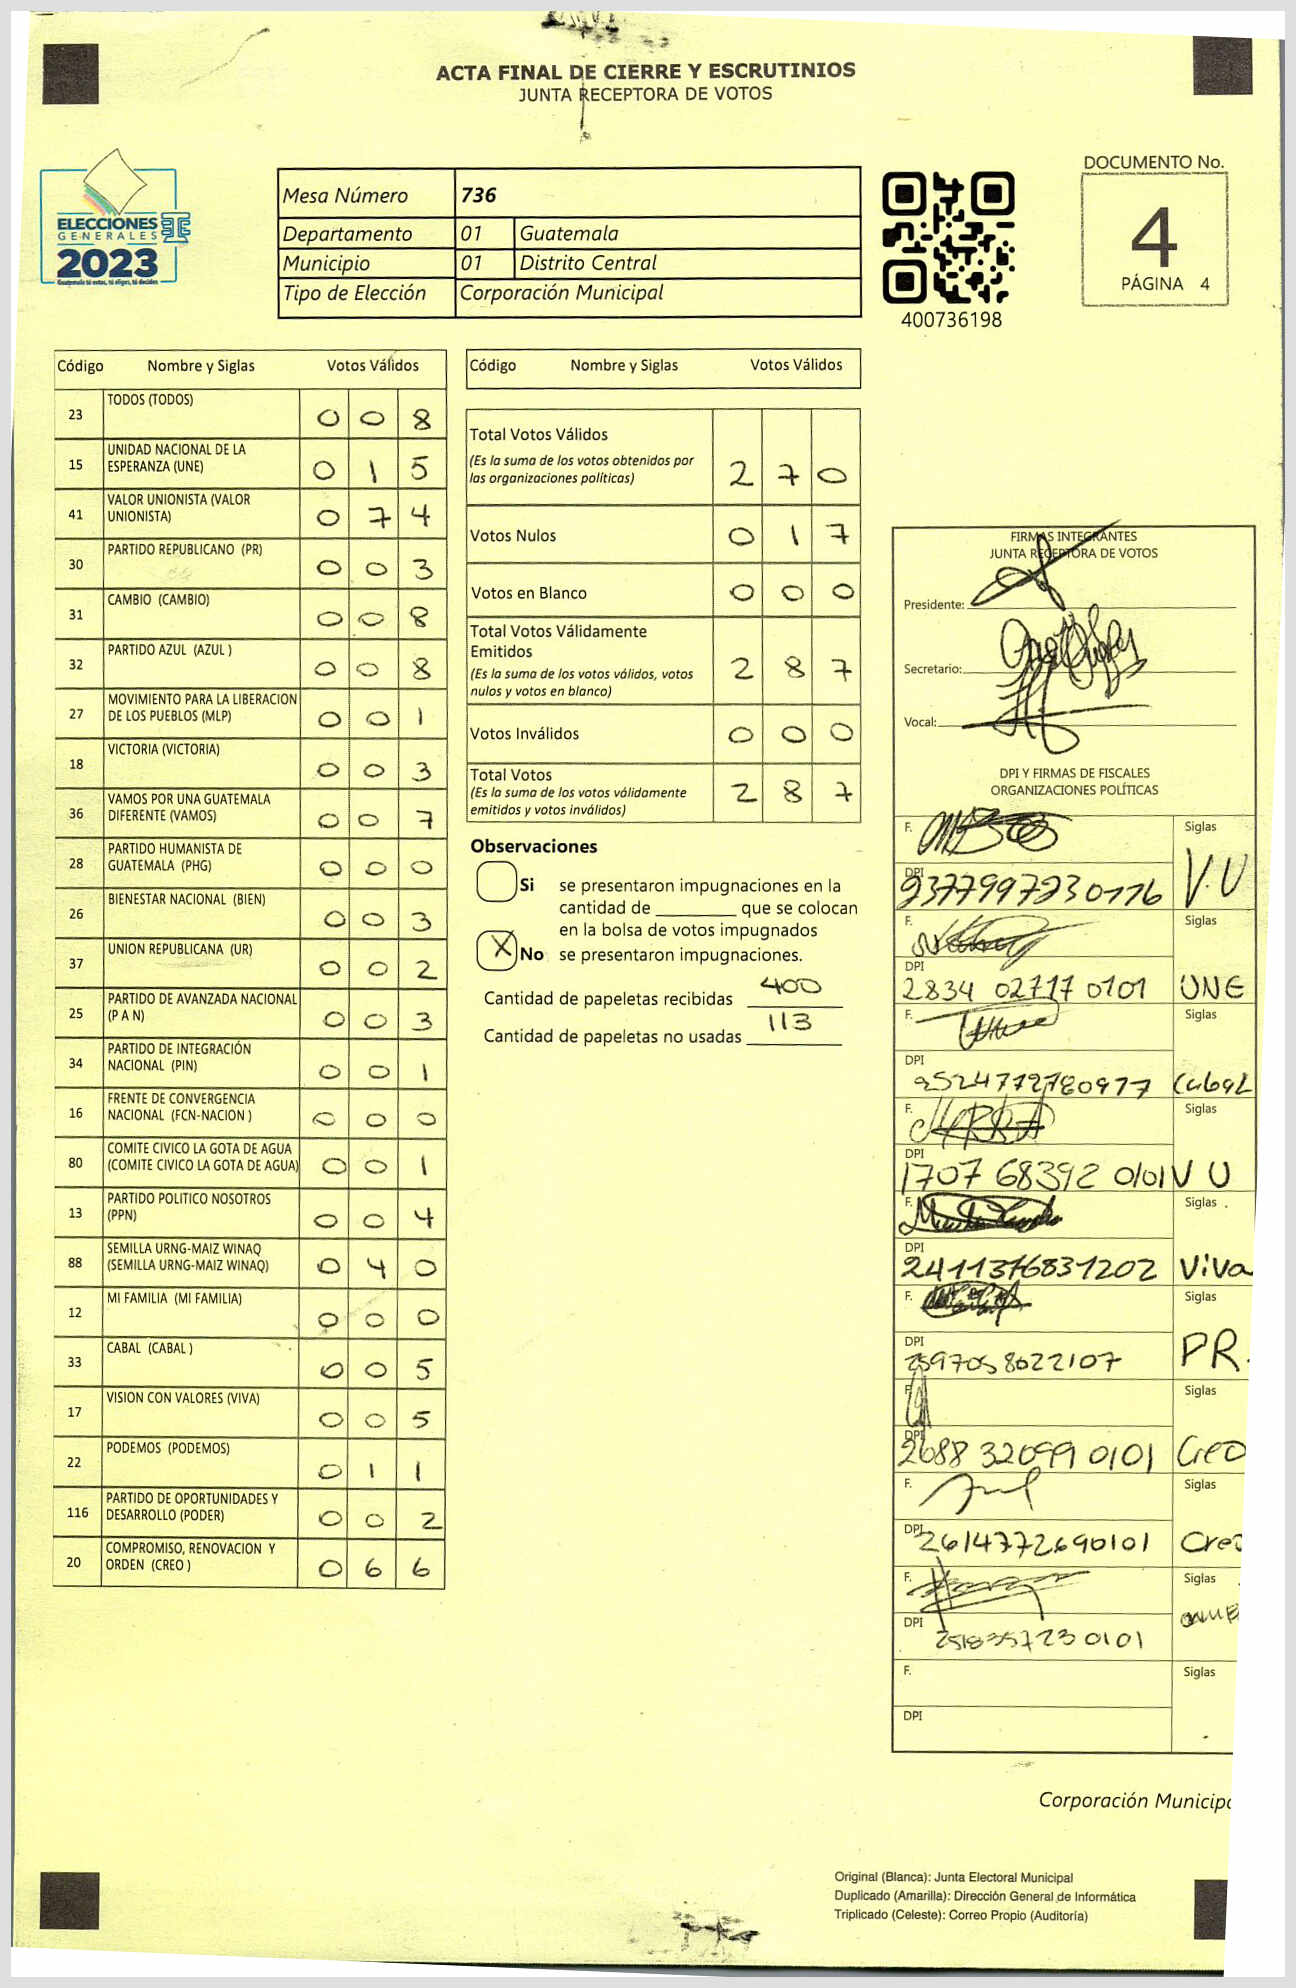 ACTA FINAL DE CIERRE Y ESCRUTINIOS
JUNTA RECEPTORA DE VOTOS
ELECCIONES
GENERALES
2023
Guatemala tú estas, tú eliges, tú decides
Mesa Número 736
Departamento 01 Guatemala
Municipio 01 Distrito Central
Tipo de Elección Corporación Municipal
400736198
DOCUMENTO No.
4
PÁGINA 4
Código Nombre y Siglas Votos Válidos
23 TODOS (TODOS) 0 0 8
15 UNIDAD NACIONAL DE LA ESPERANZA (UNE) 0 1 5
41 VALOR UNIONISTA (VALOR UNIONISTA) 0 7 4
30 PARTIDO REPUBLICANO (PR) 0 0 3
31 CAMBIO (CAMBIO) 0 0 8
32 PARTIDO AZUL (AZUL ) 0 0 8
27 MOVIMIENTO PARA LA LIBERACION DE LOS PUEBLOS (MLP) 0 0 1
18 VICTORIA (VICTORIA) 0 0 3
36 VAMOS POR UNA GUATEMALA DIFERENTE (VAMOS) 0 0 7
28 PARTIDO HUMANISTA DE GUATEMALA (PHG) 0 0 0
26 BIENESTAR NACIONAL (BIEN) 0 0 3
37 UNION REPUBLICANA (UR) 0 0 2
25 PARTIDO DE AVANZADA NACIONAL (P A N) 0 0 3
34 PARTIDO DE INTEGRACIÓN NACIONAL (PIN) 0 0 1
16 FRENTE DE CONVERGENCIA NACIONAL (FCN-NACION ) 0 0 0
80 COMITE CIVICO LA GOTA DE AGUA (COMITE CIVICO LA GOTA DE AGUA) 0 0 1
13 PARTIDO POLITICO NOSOTROS (PPN) 0 0 4
88 SEMILLA URNG-MAIZ WINAQ (SEMILLA URNG-MAIZ WINAQ) 0 4 0
12 MI FAMILIA (MI FAMILIA) 0 0 0
33 CABAL (CABAL ) 0 0 5
17 VISION CON VALORES (VIVA) 0 0 5
22 PODEMOS (PODEMOS) 0 1 1
116 PARTIDO DE OPORTUNIDADES Y DESARROLLO (PODER) 0 0 2
20 COMPROMISO, RENOVACION Y ORDEN (CREO ) 0 6 6
Código Nombre y Siglas Votos Válidos
Total Votos Válidos 2 7 0
(Es la suma de los votos obtenidos por
las organizaciones políticas)
Votos Nulos 0 1 7
Votos en Blanco 0 0 0
Total Votos Válidamente
Emitidos 2 8 7
(Es la suma de los votos válidos, votos
nulos y votos en blanco)
Votos Inválidos 0 0 0
Total Votos 2 8 7
(Es la suma de los votos válidamente
emitidos y votos inválidos)
Observaciones
Si se presentaron impugnaciones en la
cantidad de ________ que se colocan
en la bolsa de votos impugnados
X No se presentaron impugnaciones.
Cantidad de papeletas recibidas 400
Cantidad de papeletas no usadas 113
FIRMAS INTEGRANTES
JUNTA RECEPTORA DE VOTOS
Presidente:
Secretario:
Vocal:
DPI Y FIRMAS DE FISCALES
ORGANIZACIONES POLÍTICAS
F. Siglas
DPI V.U
F. Siglas
DPI 2834 02717 0101 UNE
F. Siglas
DPI Cabal
F. Siglas
DPI 1707 68392 0101 V U
F. Siglas
DPI 2411376831202 Viva
F. Siglas
DPI PR.
F. Siglas
DPI 2688 32099 0101 Creo
F. Siglas
DPI 2614772690101 Creo
F. Siglas
DPI
F. Siglas
DPI
Corporación Municipa
Original (Blanca): Junta Electoral Municipal
Duplicado (Amarilla): Dirección General de Informática
Triplicado (Celeste): Correo Propio (Auditoría)